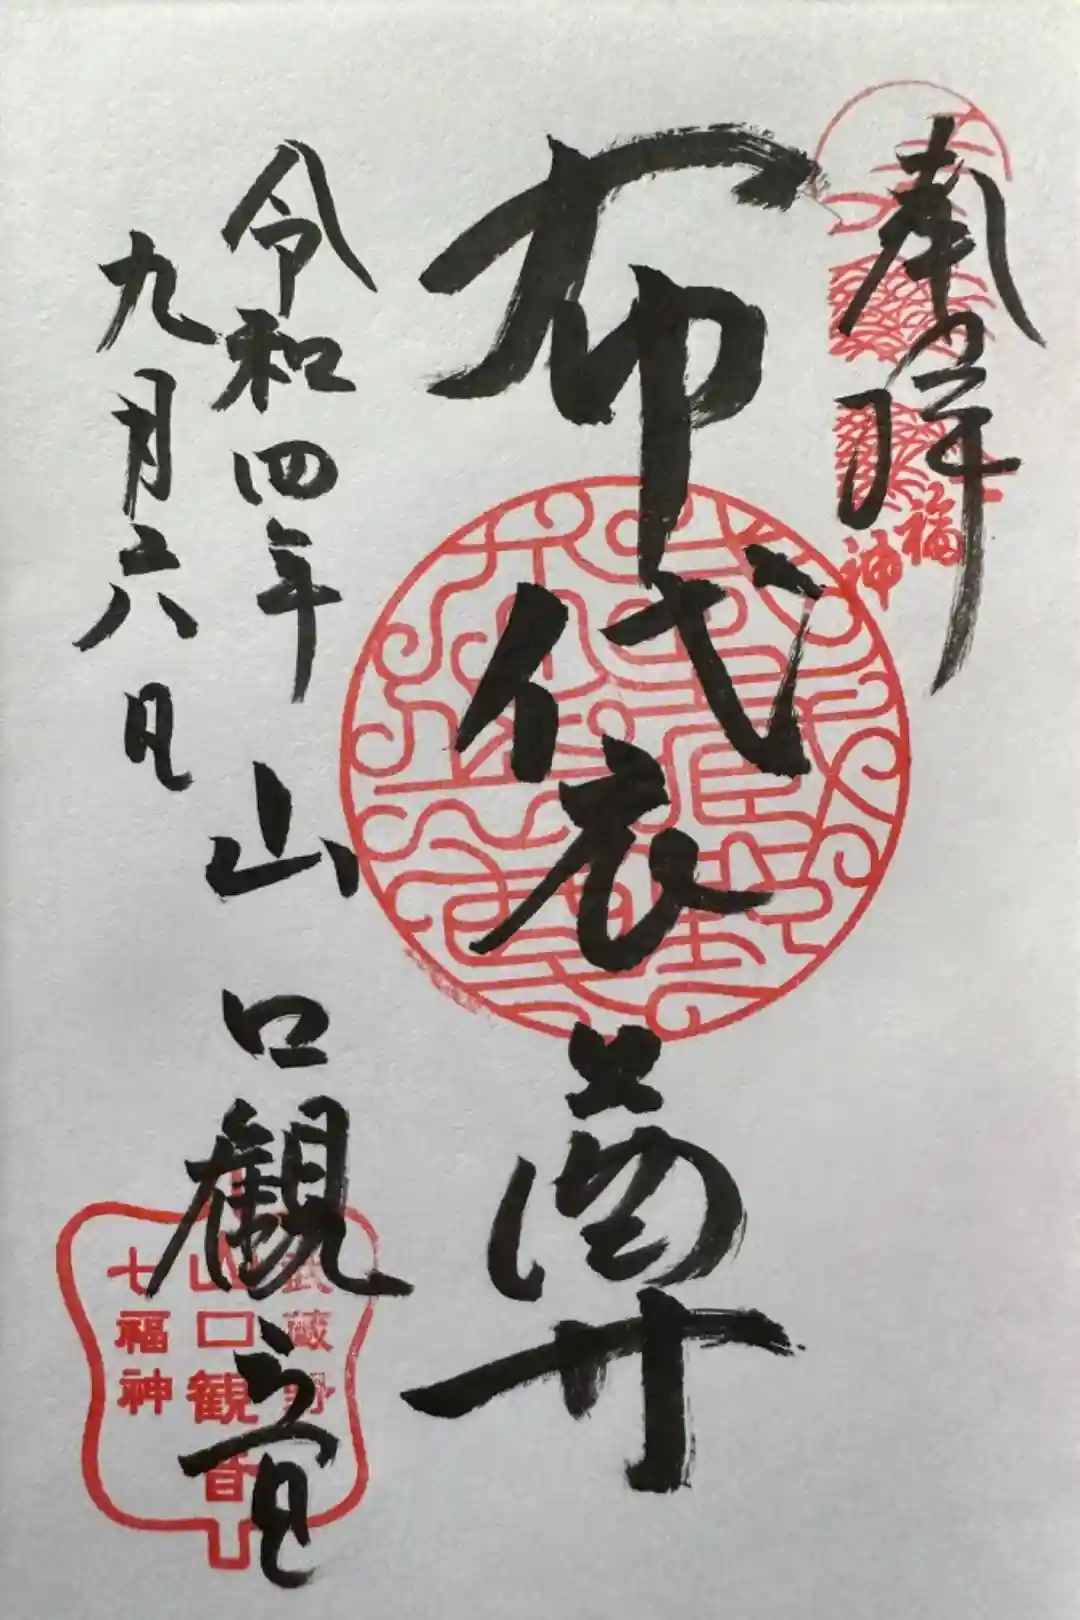 奉拝
福
神
布袋尊
令和四年
九月六日
山口観音
武蔵野
山口観音
七福神